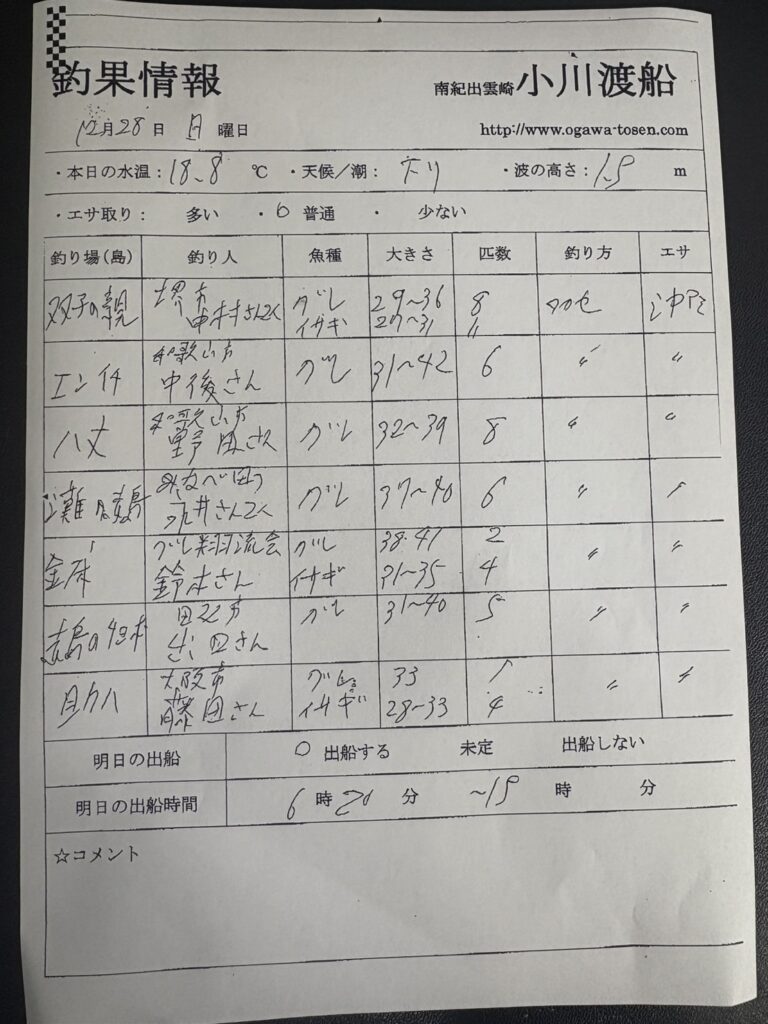 釣果情報
南紀出雲崎 小川渡船
12月28日 日 曜日
http://www.ogawa-tosen.com
・本日の水温: 18.8 ℃ ・天候/潮: 下り ・波の高さ: 1.5 m
・エサ取り: 多い ・○ 普通 ・ 少ない
釣り場(島) 釣り人 魚種 大きさ 匹数 釣り方 エサ
双子の親 堺市 中村さん2人 グレ 29~36 8 フカセ
イサギ 27~31 〃
エンヤ 和歌山市 中後さん グレ 31~42 6 〃 〃
ハ丈 和歌山市 野田さん グレ 32~39 8 〃 〃
みなべ町 さん2人 グレ 37~40 6 〃 〃
金床 グレ 38.41 2 〃 〃
鈴木さん イサギ 31~35 4
田辺市 さん グレ 31~40 5 〃 〃
大阪市 グレ 33 1 〃 〃
藤田さん イサギ 28-33 4
明日の出船 ○ 出船する 未定 出船しない
明日の出船時間 6 時 20 分 ~15 時 分
☆コメント